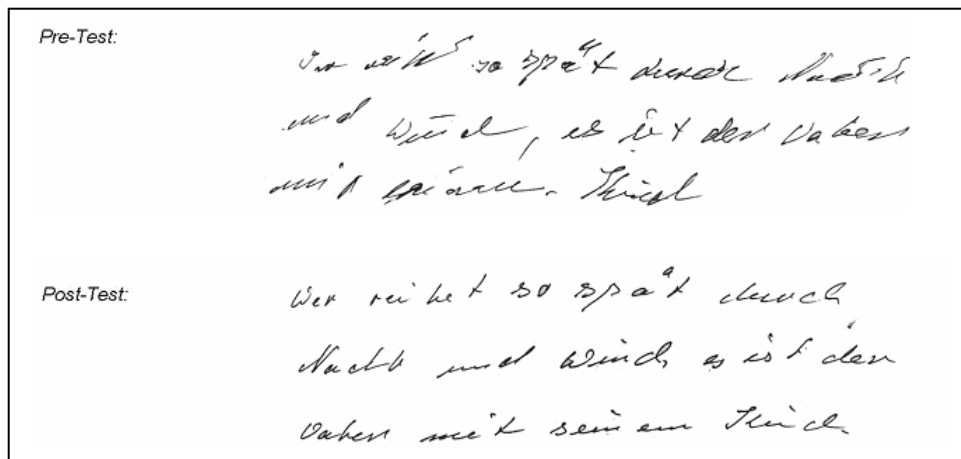 Pre-Test:
so spät durch Nacht
und Wind, es ist der Vater
mit seinem Kind
Post-Test:
Wer reitet so spät durch
Nacht und Wind, es ist der
Vater mit seinem Kind.